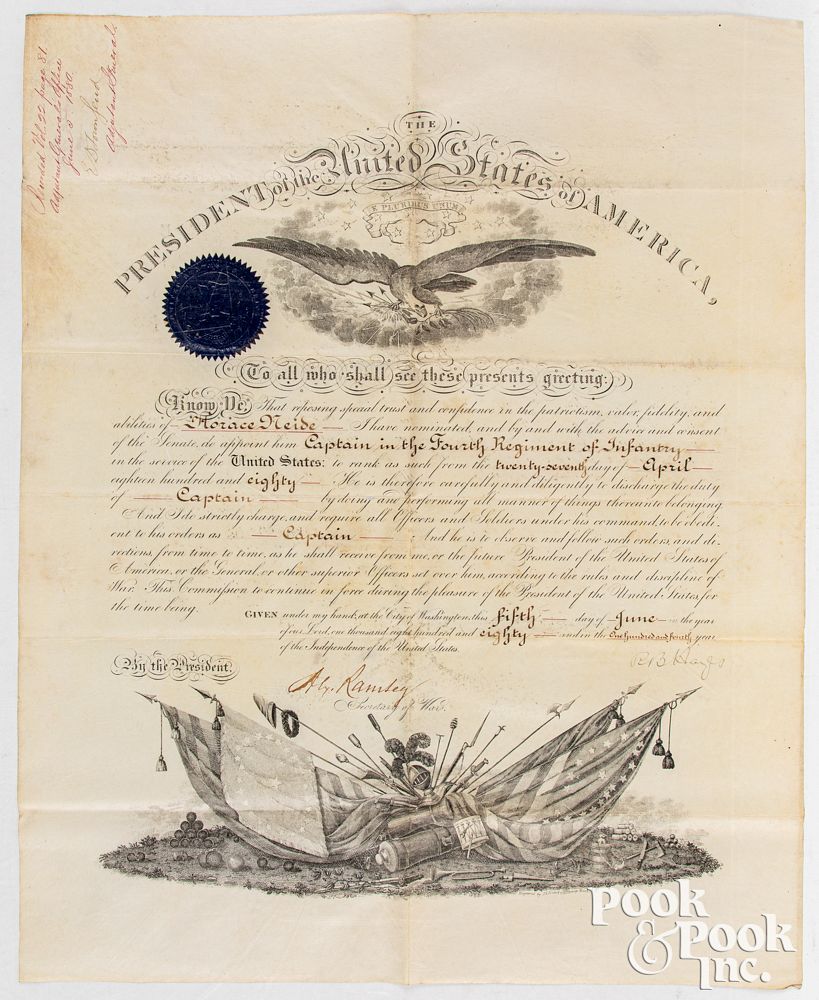 Vol. 22 page 81.
Adjutant General's Office
June 5" 1880.
Adjutant General.
THE
PRESIDENT of the United States of AMERICA,
E PLURIBUS UNUM
To all who shall see these presents greeting:
Know Ye, That reposing special trust and confidence in the patriotism, valor, fidelity, and
abilities of Horace Neide I have nominated, and by and with the advice and consent
of the Senate, do appoint him Captain in the Fourth Regiment of Infantry
in the service of the United States: to rank as such from the twenty-seventh day of April
eighteen hundred and eighty. He is therefore carefully and diligently to discharge the duty
of Captain by doing and performing all manner of things thereunto belonging
And I do strictly charge, and require all Officers and Soldiers under his command, to be obedi-
ent to his orders as Captain. And he is to observe and follow such orders, and di-
rections, from time to time, as he shall receive from me, or the future President of the United States of
America, or the General, or other superior Officers set over him, according to the rules and discipline of
War. This Commission to continue in force during the pleasure of the President of the United States, for
the time being.
GIVEN under my hand, at the City of Washington, this fifth day of June in the year
of our Lord, one thousand eight hundred and eighty and in the one hundred and fourth year
of the Independence of the United States.
By the President.
R B Hayes
Alex. Ramsey
Secretary of War.
POOK
& POOK
INC.